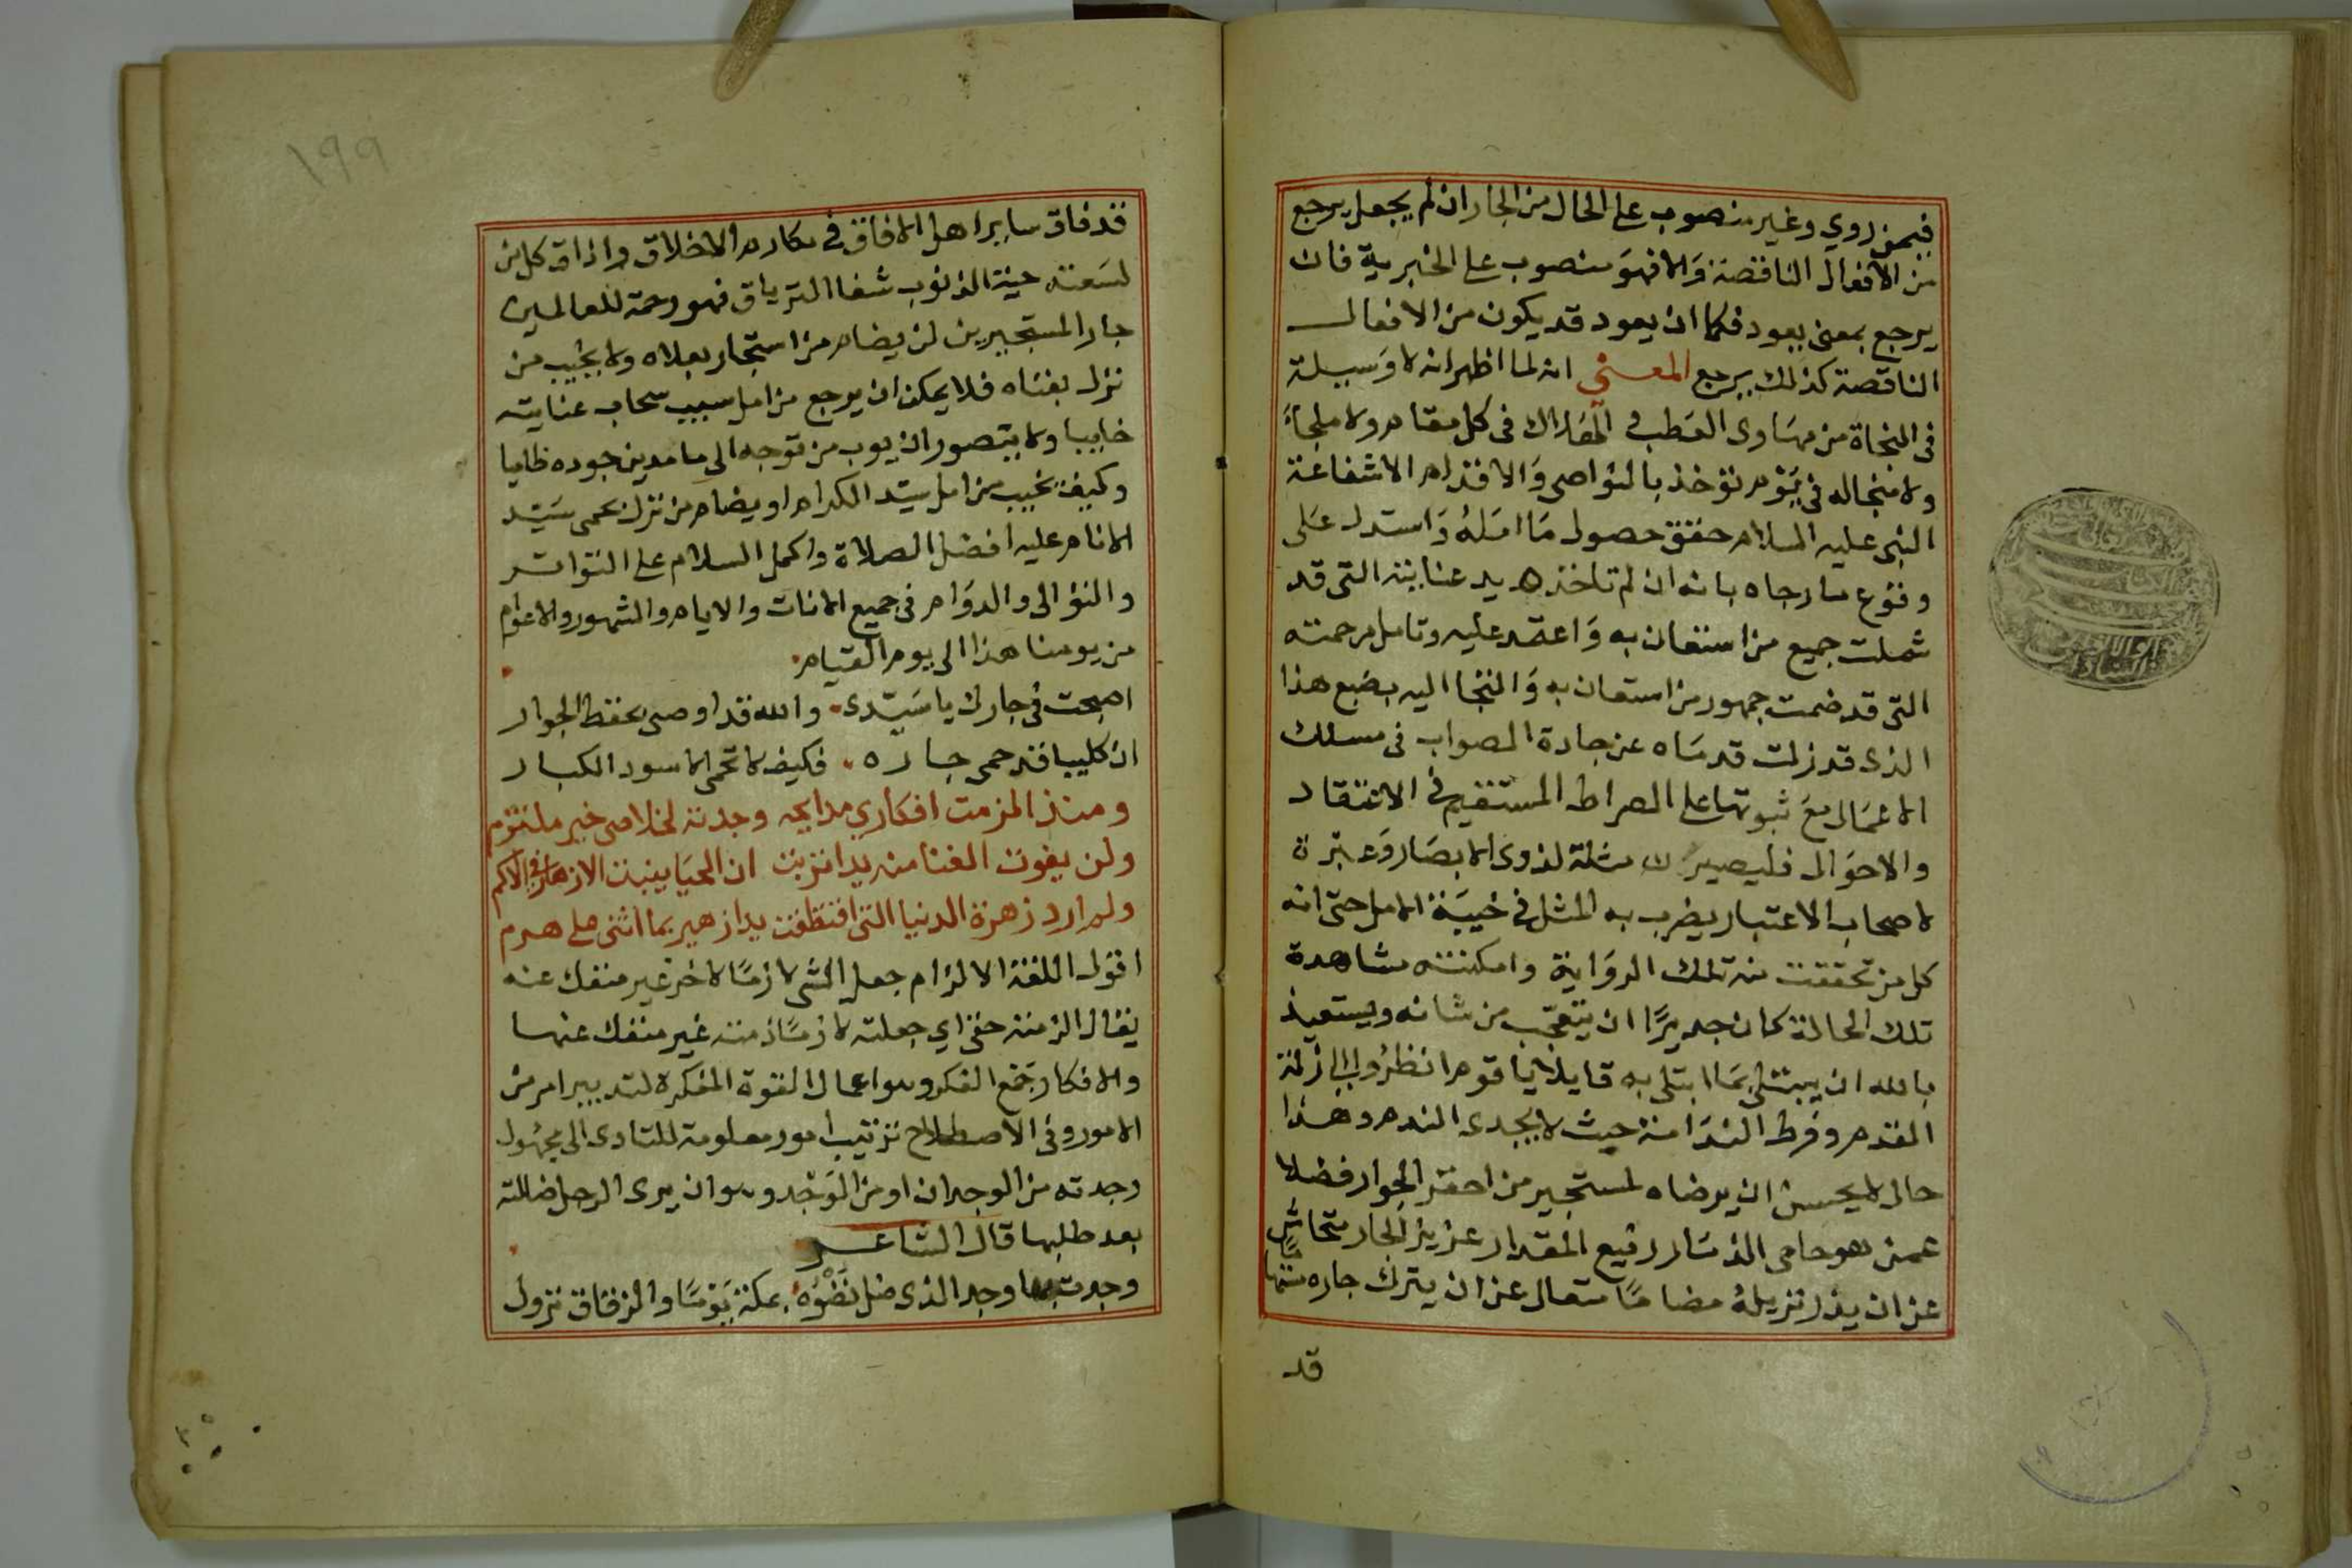 فيمن روي وغير منصوب على الحال من الجار ان لم يجعل يرجع
من الافعال الناقصة وَالا فهوَ منصوب على الخبرية فان
يرجع بمعنى يعود فكما ان يعود قد يكون من الافعال
الناقصة كذلك يرجع المعنى انه لما اظهر انه لا وَسيلة
فى النجاة من مهاوى العَطب و الهَلاك فى كل مقام ولا ملجاءَ
ولا منجاله فى يَوْم تؤخذ بالنواصى وَالاقدام الا شفاعة
النبى عليه السلام حقق حصول مَا امَلهُ وَاستدل عَلى
وقوع ما رجاه بانه ان لم تاخذه يد عنايته التى قد
شملت جميع من استعان به وَاعتمد عليه وتامل مرحمته
التى قد ضمت جمهور من استعان به وَالتجا اليه بضبع هذا
الذى قد زلت قدمَاه عن جادة الصواب فى مسلك
الاعمَال معَ ثبوتها على الصراط المستقيم فى الاعتقاد
والاحوَال فليصيرن مثلة لذوى الابصَار وَعبرة
لاصحاب الاعتبار يضرب به المثل فى خيبَة الامل حتى انه
كل من تحققت منه تلك الروَاية وامكنته مشاهدة
تلك الحالة كان جديرًا ان يتعجّب من شانه ويستعيذ
بالله ان يبتلى بمَا ابتلى به قايلا يا قوم انظرُوا الى ازلة
القدم وفرط الندَامة حيث لا يجدى الندم وهذا
حال لا يحسن ان يرضاه لمستجير من احقر الجوار فضلا
عمن هو حامى الذمَار رفيع المقدار عزيز الجار متحاش
عن ان يذر نزيلهُ مضامًا متعال عن ان يترك جاره متهمًا
قد
١٩٩
قد فاق ساير اهل الافاق فى مكارم الاخلاق واذاق كل من
لسَعته حية الذنوب شفا الترياق فهو رحمة للعالمين
جار المستجيرين لن يضام من استجار بعلاه ولا يخيب من
نزل بفناه فلا يمكن ان يرجع من امل سبيب سحاب عنايته
خايبا ولا يتصور ان يوب من توجه الى ما مدين جوده ظاميا
وكيف يخيب من امل سيّد الكرام او يضام من نزل بحمى سَيّد
الانام عليه افضل الصلاة واكمل السلام على التواتر
والتوالى والدوَام فى جميع الانات والايام والشهور والاعوام
من يومنا هذا الى يوم القيام
اصبحت فى جارك يا سَيّدى والله قد اوصى بحفظ الجوار
ان كليبا قد حمى جاره فكيف لا تحمى الاسود الكبار
ومنذ الزمت افكاري مدايحه وجدته لخلاصى خير ملتزم
ولن يفوت الغنا منه يدا تربت ان الحيَا ينبت الازهار فى الاكم
ولم ارد زهرة الدنيا التى اقتطفت يدا زهير بما اثنى على هرم
اقول اللغة الالزام جعل الشى لازمًا لاخر غير منفك عنه
يقال الزمته حقى اي جعلته لازمًا ذمته غير منفك عنها
والافكار جَمْع الفكر وهو اعمال القوة المفكرة لتدبير امر من
الامور وفى الاصطلاح ترتيب امور معلومة للتادى الى مجهُول
وجدته من الوجدان او من الوَجْد وهو ان يرى الرجل ضالته
بعد طلبها قال الشاعر
وجدت بها وجد الذى ضل نضْوُه بمكة يَوْمًا والرفاق نزول